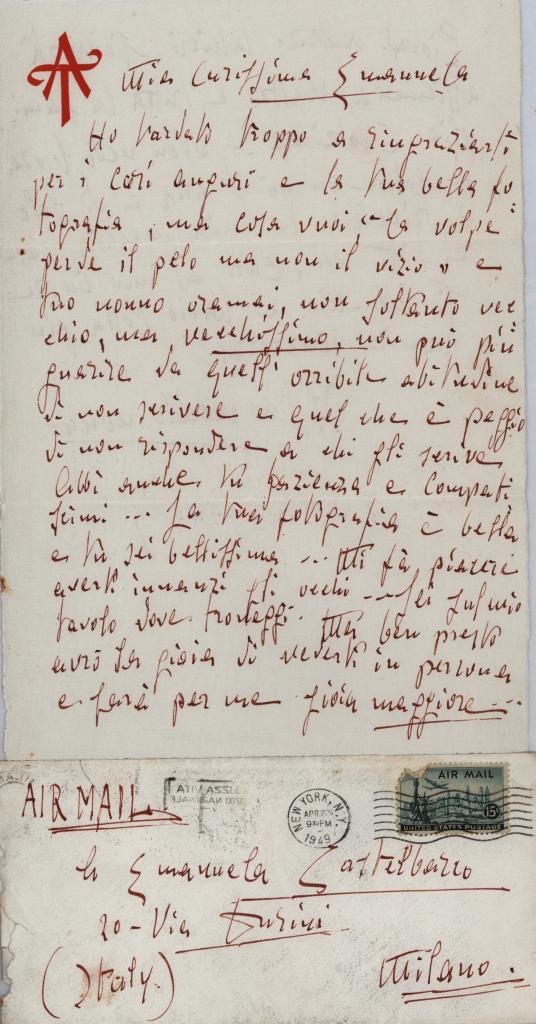 AT
Mia Carissima Emanuela
Ho tardato troppo a ringraziarti
per i cari auguri e la tua bella fo-
tografia, ma cosa vuoi, "la volpe
perde il pelo ma non il vizio" e
tuo nonno oramai, non soltanto vec
chio, ma vecchissimo, non può più
guarire da quell'orribile abitudine
di non scrivere e quel che è peggio
di non rispondere a chi gli scrive
Abbi anche tu pazienza e compati
scimi ... La tua fotografia è bella
e tu sei bellissima ... Mi fà piacere
averti innanzi gli occhi ... Sei sul mio
tavolo dove troneggi. Ma ben presto
avrò la gioia di vederti in persona
e sarà per me gioia maggiore ...
AIR MAIL
NEW YORK, N.Y.
APR
9 PM
1949
AIR MAIL
15¢
UNITED STATES POSTAGE
Emanuela Castelbarco
20 - Via Durini
(Italy)
Milano.